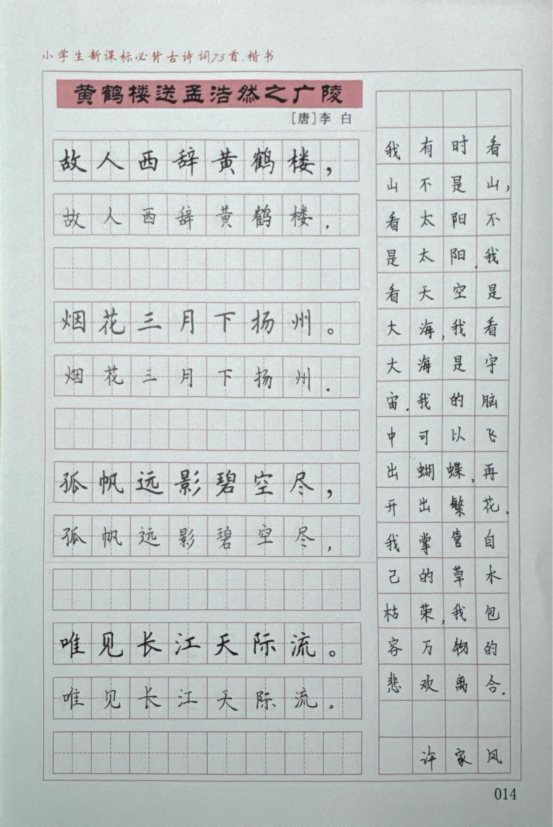 小学生新课标必背古诗词75首·楷书
黄鹤楼送孟浩然之广陵
[唐]李 白
故人西辞黄鹤楼，
故人西辞黄鹤楼，
烟花三月下扬州。
烟花三月下扬州.
孤帆远影碧空尽，
孤帆远影碧空尽，
唯见长江天际流。
唯见长江天际流。
我有时看
山不是山，
看太阳不
是太阳.我
看天空是
大海，我看
大海是宇
宙.我的脑
中可以飞
出蝴蝶，再
开出繁花.
我掌管自
己的草木
枯荣，我包
容万物的
悲欢离合.
许家凤
014